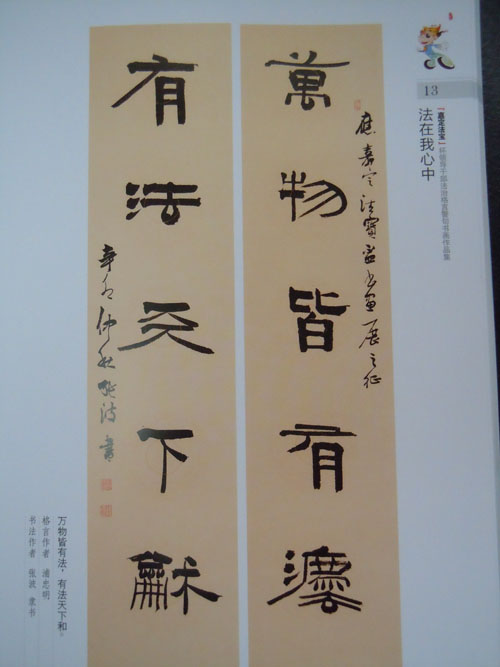 13
「嘉定法宝」杯领导干部法治格言警句书画作品集
法在我心中
應嘉定法寶盃書畫展之征
萬物皆有灋
有法天下龢
辛卯仲秋張波書
万物皆有法，有法天下和。
格言作者 浦忠明
书法作者 张波 隶书